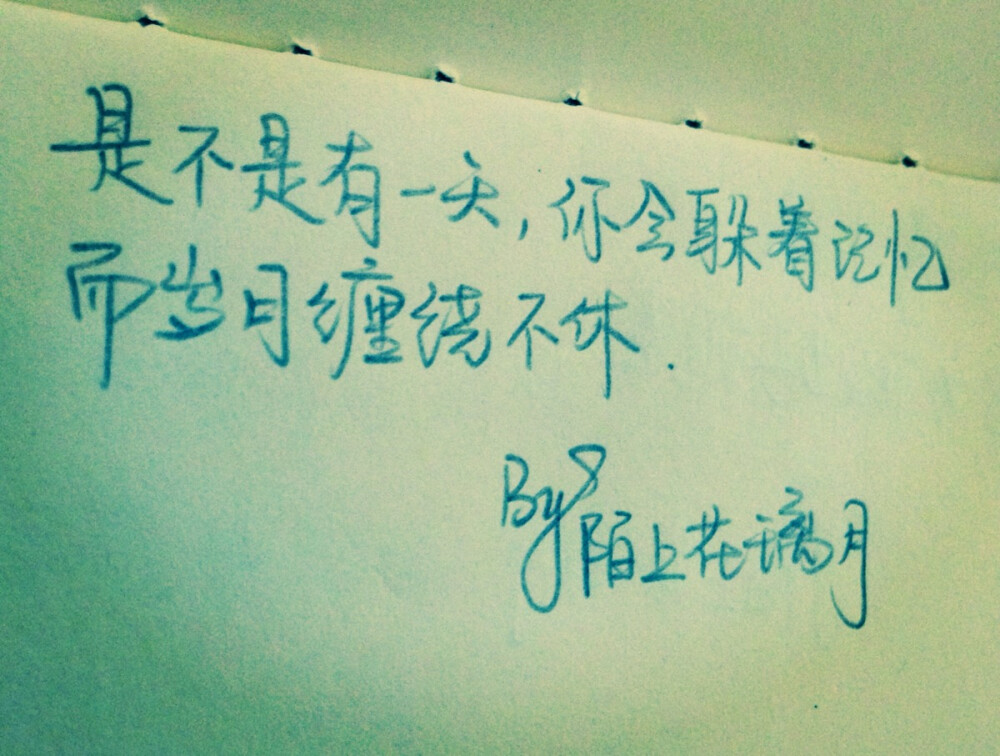 是不是有一天，你会躲着记忆
而岁月缠绕不休.
By 陌上花璃月